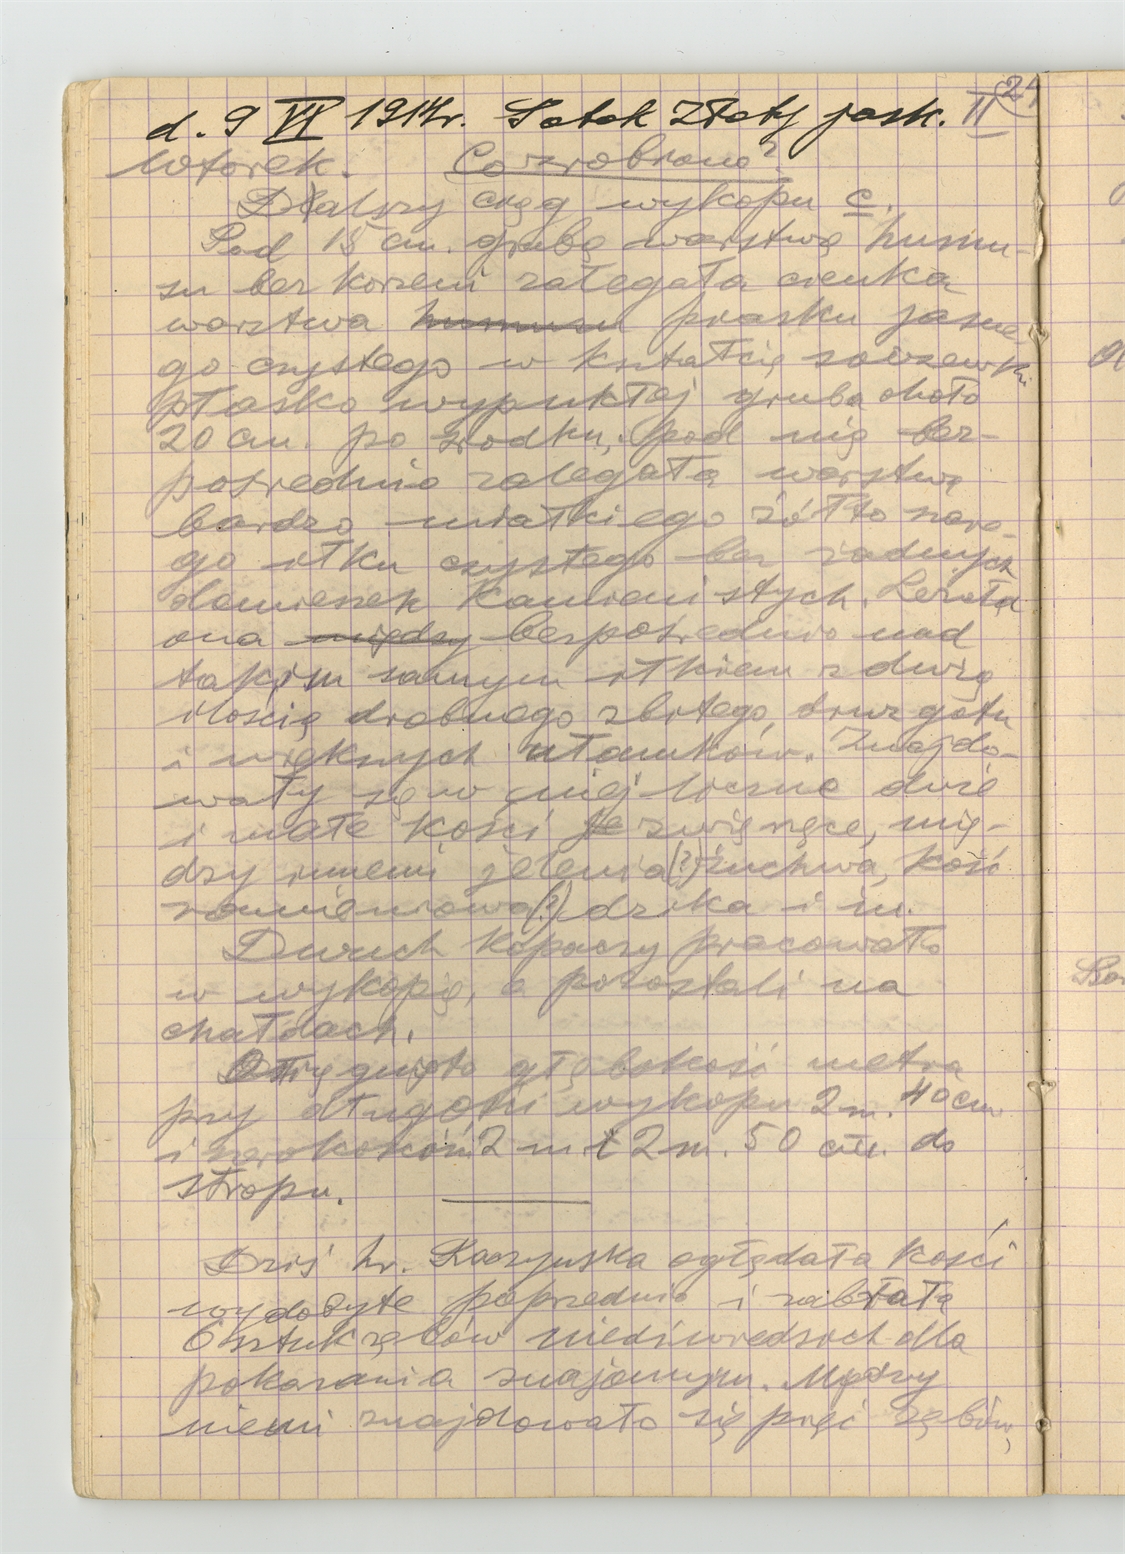 24
d. 9 VI 1914r. Potok Złoty jask. II
Wtorek. Co zrobiono?
Dalszy ciąg wykopu c.
Pod 15 cm. grubą warstwą humu-
su bez korzeni zalegała cienka
warstwa humusu piasku jasne-
go czystego w kształcie soczewki
płasko wypukłej gruba około
20 cm. po środku, pod nią bez-
pośrednio zalegała warstwa
bardzo miałkiego żółto szare-
go iłku czystego bez żadnych
domieszek kamienistych. Leżała
ona między bezpośrednio nad
takim samym iłkiem z dużą
ilością drobnego zbitego druzgotu
i większych ułamków. Znajdo-
wały się w niej liczne duże
i małe kości zwierzęce, mię-
dzy innemi jelenia(?) żuchwa, kość
ramieniowa(?) dzika i in.
Dwuch kopaczy pracowało
w wykopie, a pozostali na
chałdach.
Osiągnięto głębokość metra
przy długości wykopu 2 m. 40 cm
i szerokości 2 m i 2 m. 50 cm. do
stropu.
Dziś hr. Raczyńska oglądała kości
wydobyte poprzednio i zabrała
6 sztuk zębów niedźwiedzich dla
pokazania znajomym. Między
niemi znajdowało się pięć zębów,